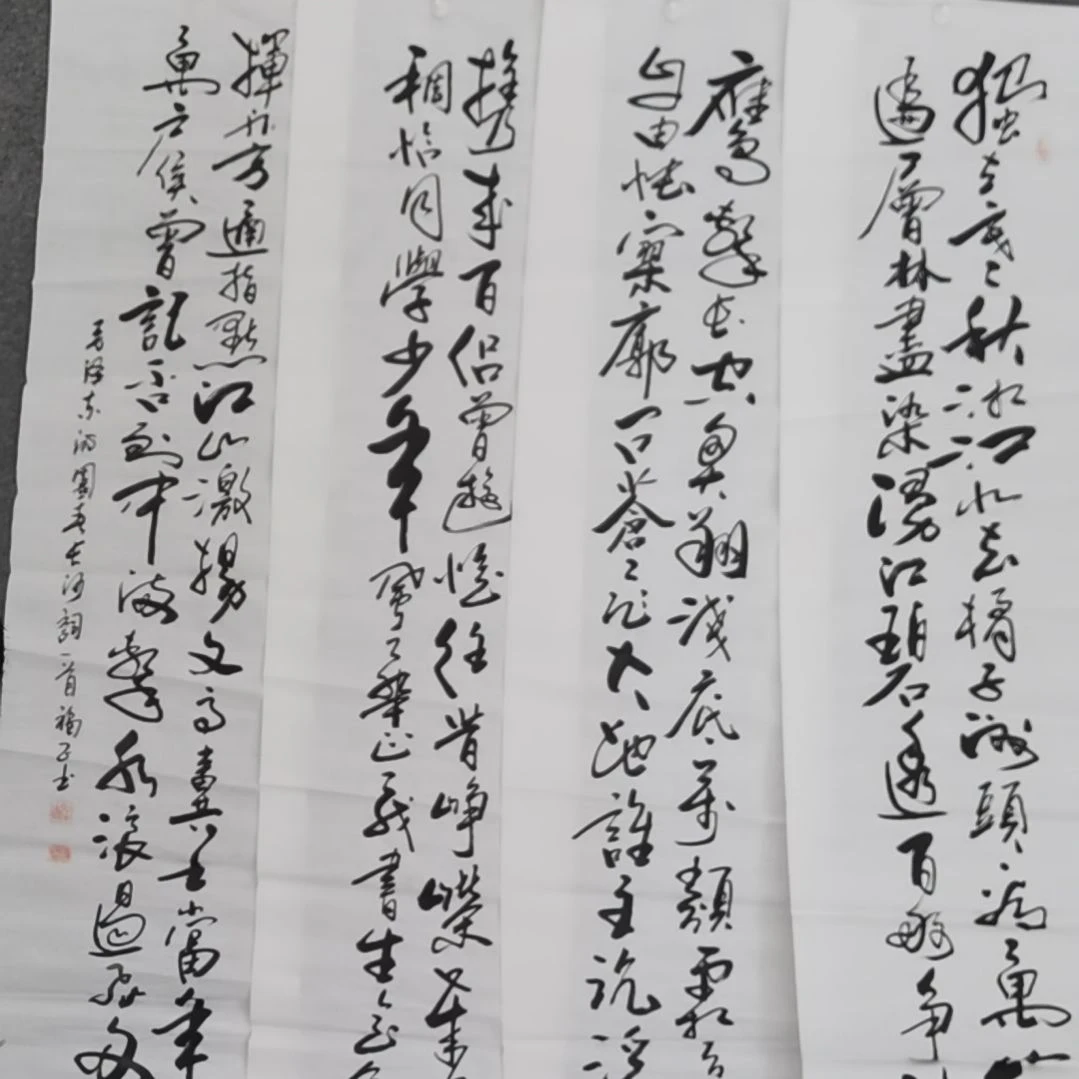 獨立寒秋湘江北去橘子洲頭看萬
遍層林盡染漫江碧透百舸爭
鷹擊長空魚翔淺底萬類霜
自由悵寥廓問蒼茫大地誰主沉浮
攜來百侶曾遊憶往昔崢嶸歲
稠恰同學少年風華正茂書生意
揮斥方遒指點江山激揚文字糞土當年
萬戶侯曾記否到中流擊水浪遏飛舟
毛澤東沁園春長沙詞一首福子書